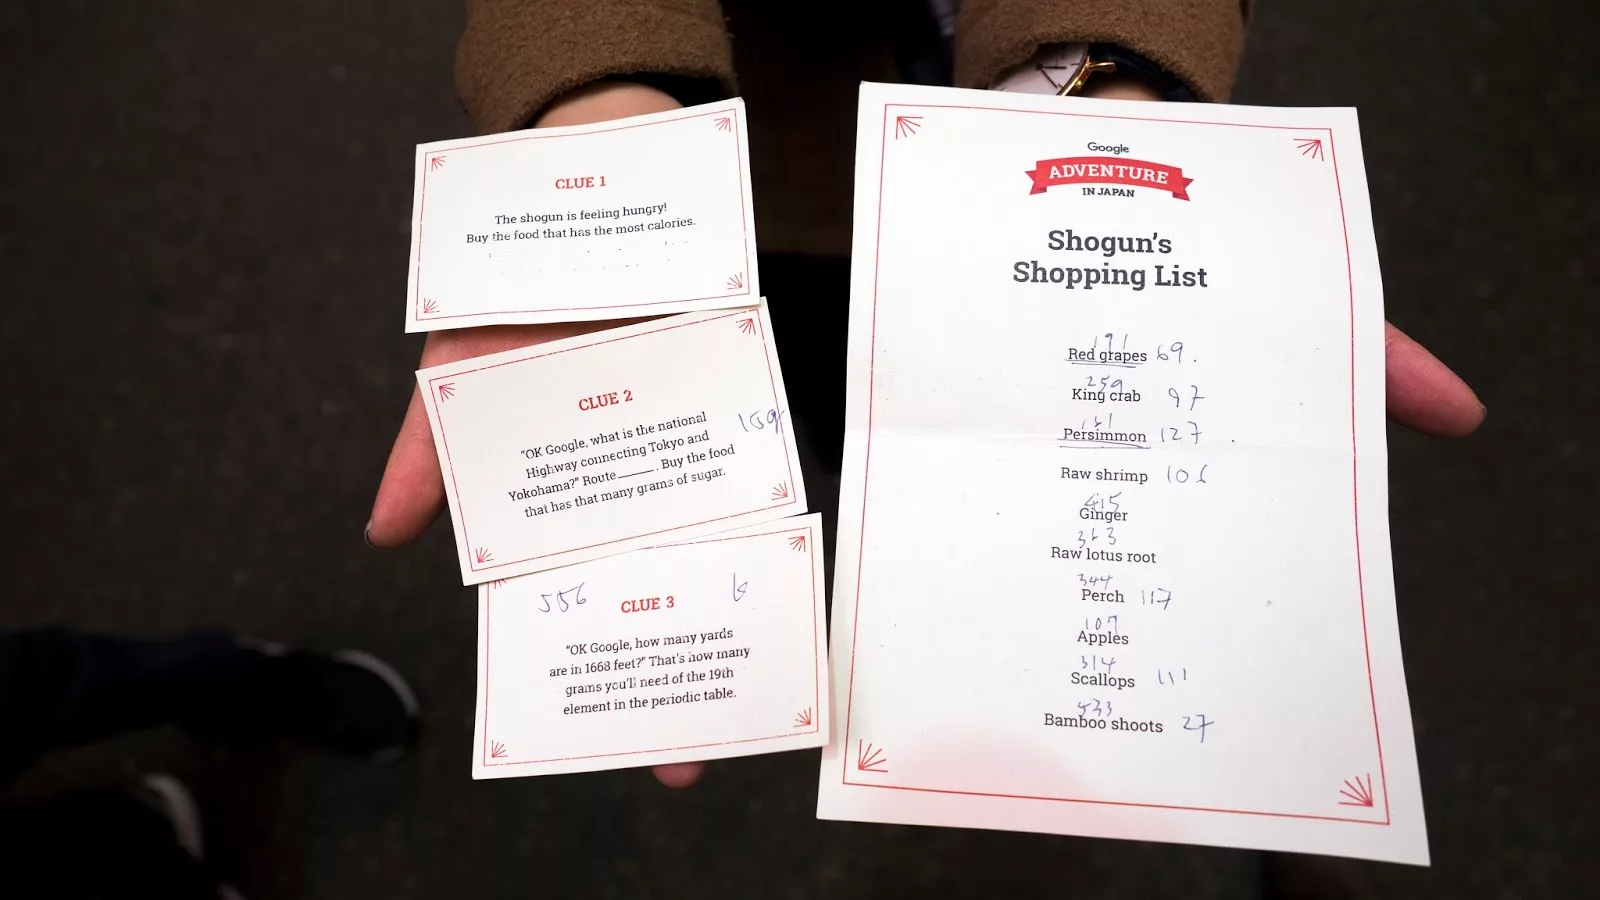 CLUE 1
The shogun is feeling hungry!
Buy the food that has the most calories.
CLUE 2
"OK Google, what is the national
Highway connecting Tokyo and
Yokohama?" Route ______. Buy the food
that has that many grams of sugar.
556
6
CLUE 3
"OK Google, how many yards
are in 1668 feet?" That's how many
grams you'll need of the 19th
element in the periodic table.
Google
ADVENTURE
IN JAPAN
Shogun's
Shopping List
191
Red grapes 69.
259
King crab 97
Persimmon 127
Raw shrimp 106
415
Ginger
Raw lotus root
344
Perch 117
107
Apples
314
Scallops 111
533
Bamboo shoots 27